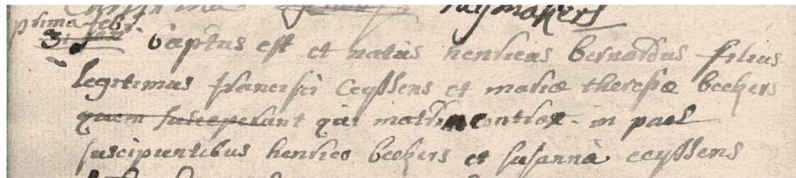 raijmakers
prima febr
31 jan baptus est et natus henricus bernardus filius
legitimus francisci ceijssens et mariæ theresiæ beckers
quem susceperunt qui matrim contrax - in paer
suscipientibus henrico beckers et susanna ceijssens